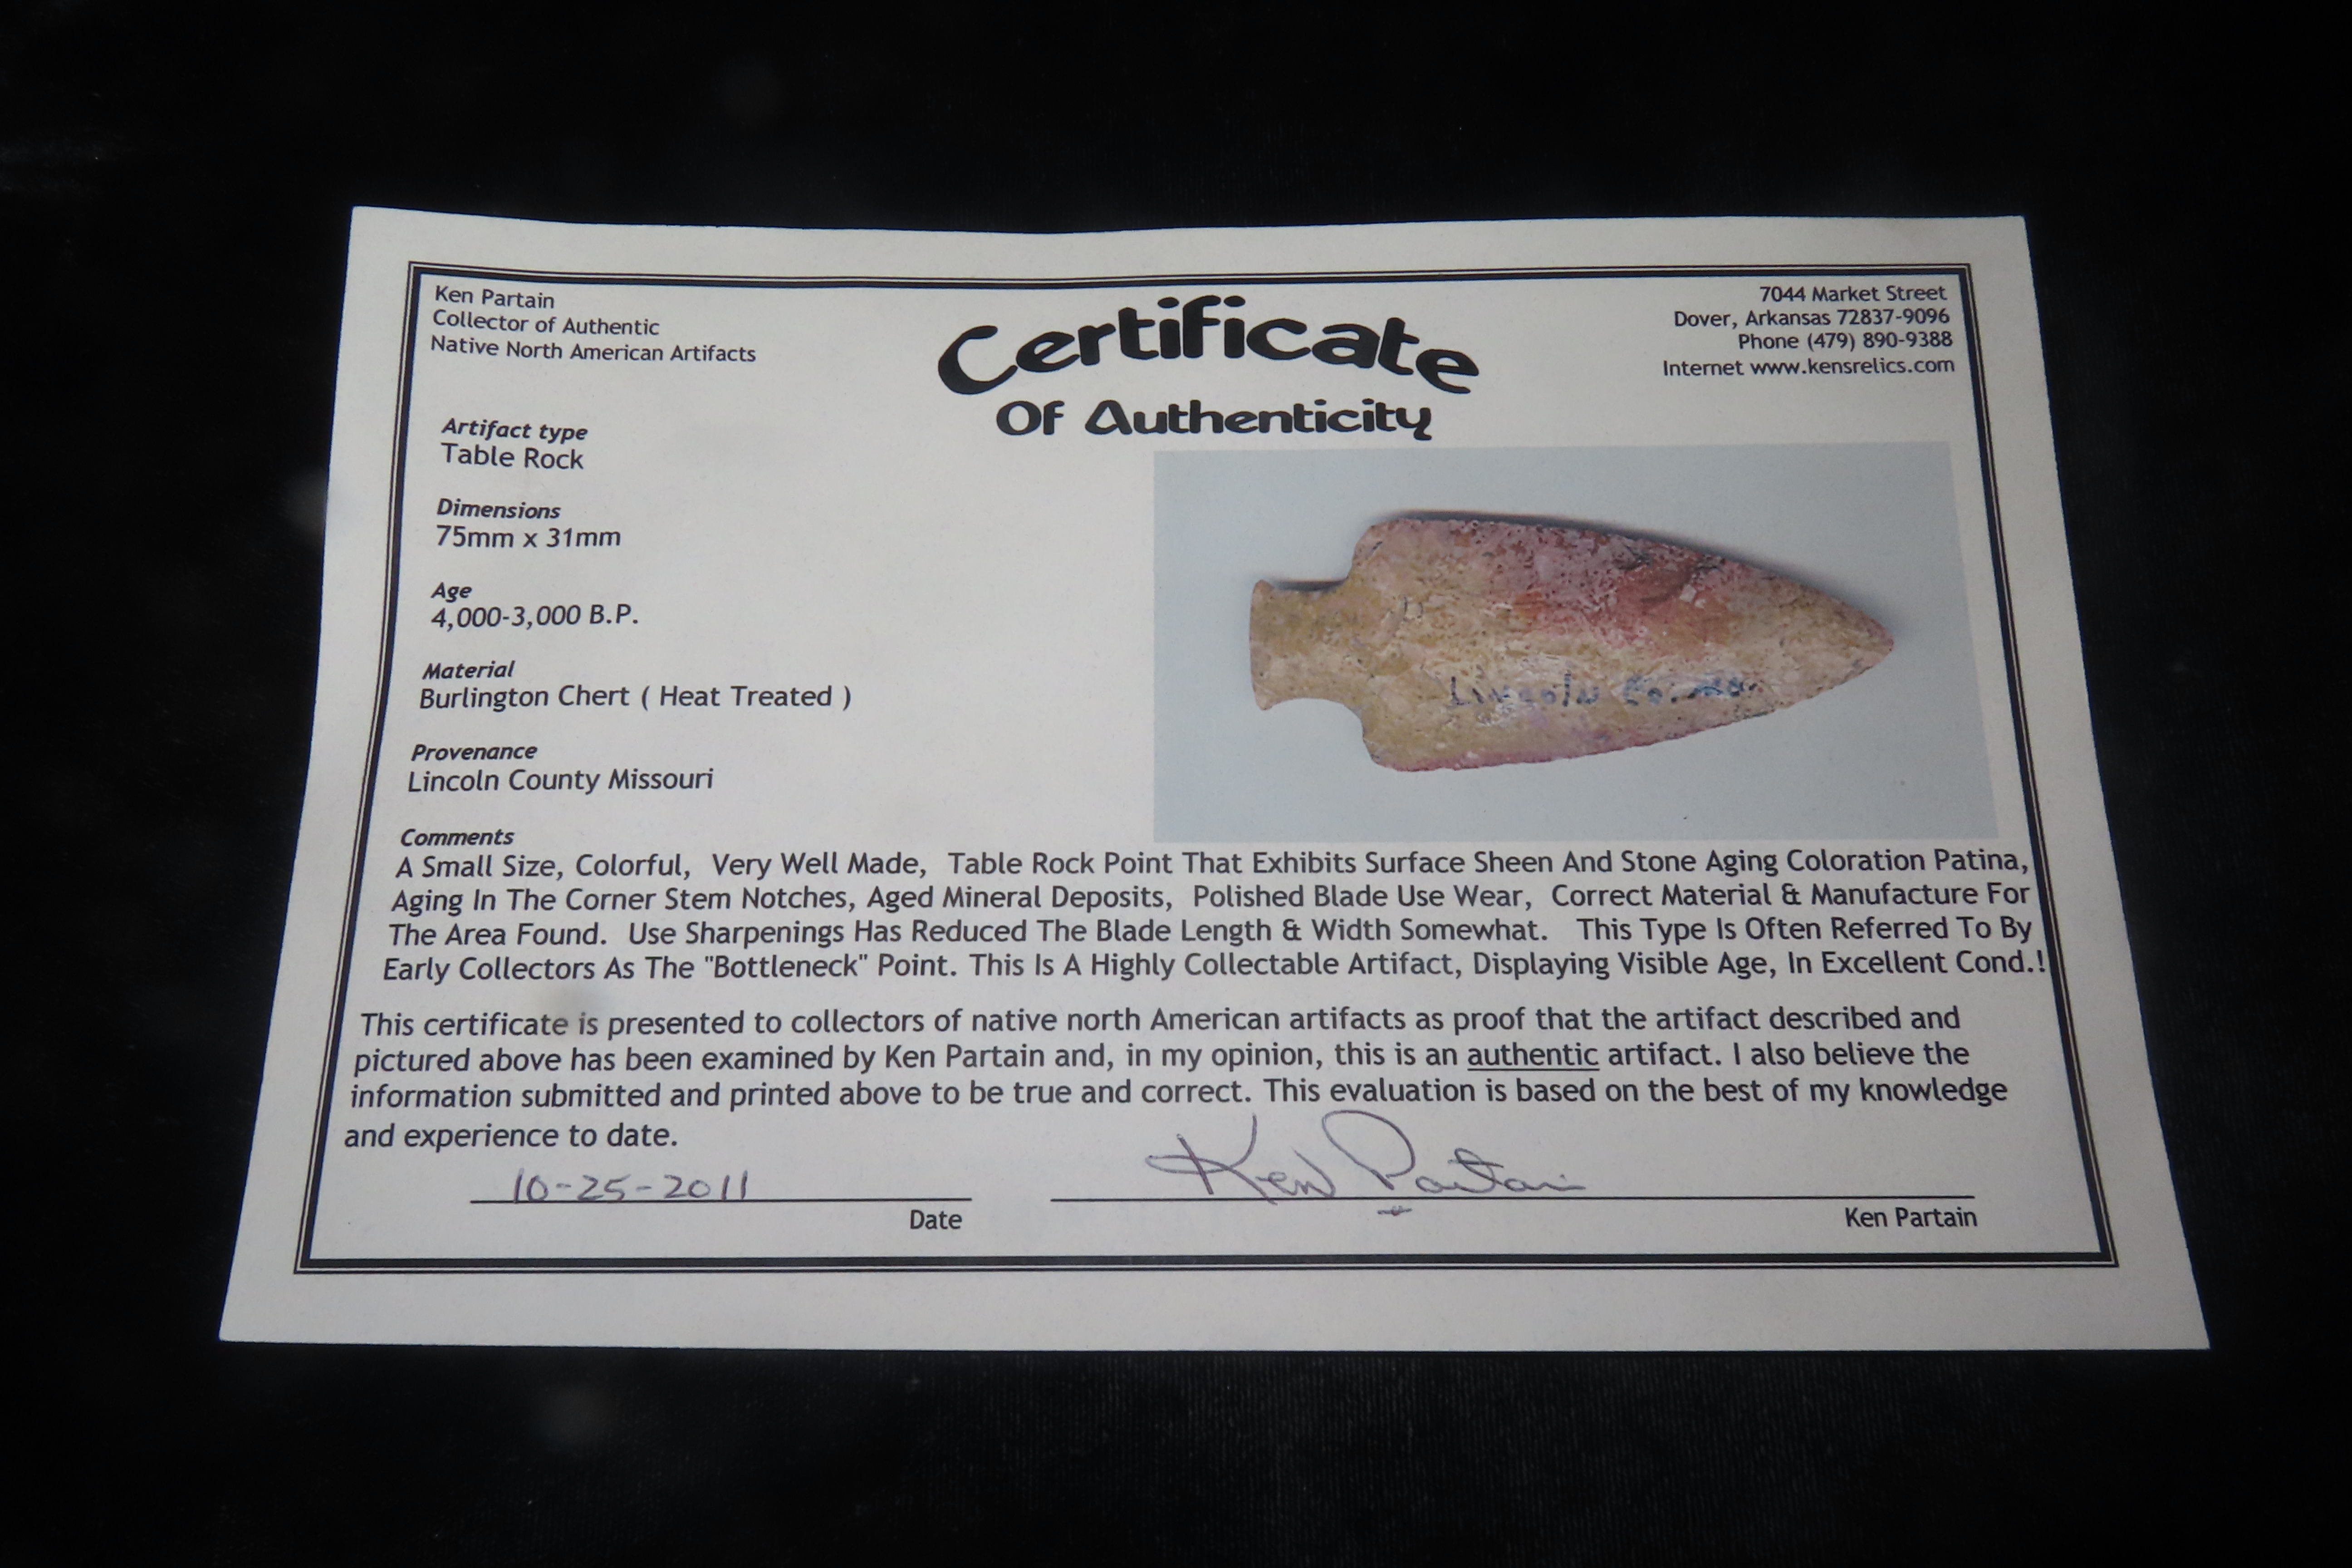 Ken Partain
Collector of Authentic
Native North American Artifacts
Certificate
Of Authenticity
7044 Market Street
Dover, Arkansas 72837-9096
Phone (479) 890-9388
Internet www.kensrelics.com
Artifact type
Table Rock
Dimensions
75mm x 31mm
Age
4,000-3,000 B.P.
Material
Burlington Chert ( Heat Treated )
Provenance
Lincoln County Missouri
Lincoln Co. Mo.
Comments
A Small Size, Colorful, Very Well Made, Table Rock Point That Exhibits Surface Sheen And Stone Aging Coloration Patina,
Aging In The Corner Stem Notches, Aged Mineral Deposits, Polished Blade Use Wear, Correct Material & Manufacture For
The Area Found. Use Sharpenings Has Reduced The Blade Length & Width Somewhat. This Type Is Often Referred To By
Early Collectors As The "Bottleneck" Point. This Is A Highly Collectable Artifact, Displaying Visible Age, In Excellent Cond.!
This certificate is presented to collectors of native north American artifacts as proof that the artifact described and
pictured above has been examined by Ken Partain and, in my opinion, this is an authentic artifact. I also believe the
information submitted and printed above to be true and correct. This evaluation is based on the best of my knowledge
and experience to date.
10-25-2011
Ken Partain
Date
Ken Partain